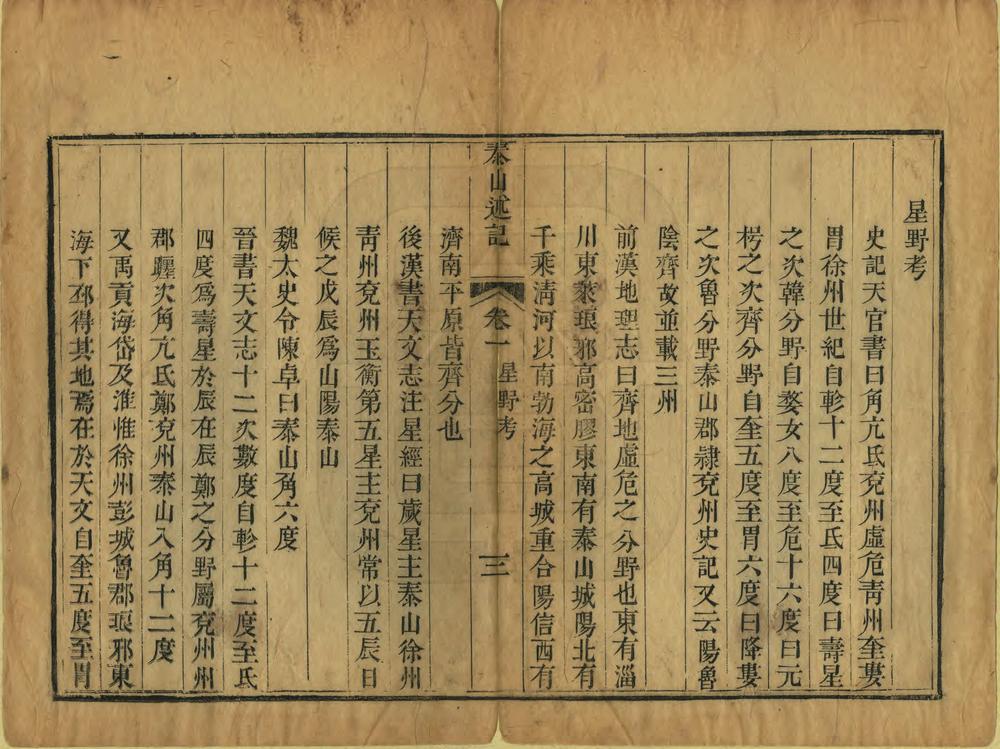 星野考
史記天官書曰角亢氐兗州虛危靑州奎婁
胃徐州世紀自軫十二度至氐四度曰壽星
之次韓分野自婺女八度至危十六度曰元
枵之次齊分野自奎五度至胃六度曰降婁
之次魯分野泰山郡隷兗州史記又云陽魯
陰齊故並載三州
前漢地理志曰齊地虛危之分野也東有淄
川東萊琅邪高密膠東南有泰山城陽北有
千乘淸河以南勃海之高城重合陽信西有
泰山述記
卷一
星野考
三
濟南平原皆齊分也
後漢書天文志注星經曰歲星主泰山徐州
靑州兗州玉衡第五星主兗州常以五辰日
候之戊辰爲山陽泰山
魏太史令陳卓曰泰山角六度
晉書天文志十二次數度自軫十二度至氐
四度爲壽星於辰在辰鄭之分野屬兗州州
郡躔次角亢氐鄭兗州泰山入角十二度
又禹貢海岱及淮惟徐州彭城魯郡琅邪東
海下邳得其地焉在於天文自奎五度至胃